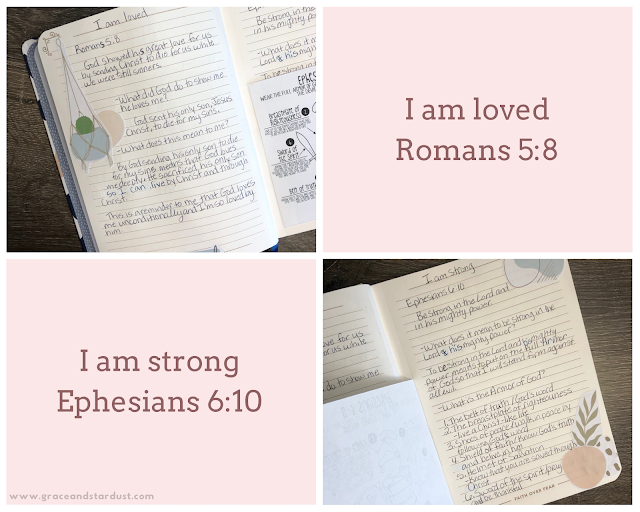 I am loved
Romans 5:8
God showed his great love for us
by sending Christ to die for us while
we were still sinners.
-What did God do to show me
he loves me?
God sent his only son, Jesus
Christ, to die for my sins.
-What does this mean to me?
By God sending his only son to die
for my sins means that God loves
me deeply. He sacrificed his only son
so I can live by Christ and through
Christ.
This is a reminder to me that God loves
me unconditionally and I'm so loved by
him.
Be strong in the
his mighty power
-What does it m
Lord & his mig
To be strong
WEAR THE FULL ARMOR
BREASTPLATE OF
RIGHTEOUSNESS
SWORD
OF THE SPIRIT
BELT OF TRUTH
I am loved
Romans 5:8
I am strong
Ephesians 6:10
I am strong
Ephesians 6:10
Be strong in the Lord and
in his mighty power.
-What does it mean to be strong in the
Lord & his mighty power?
To be strong in the Lord and his mighty
power means to put on the Full Armor
of God so that I will stand firm against
all evil.
-What is the Armor of God?
1. The belt of truth/God's word
2. The breastplate of righteousness
-live a Christ like life
3. Shoes of peace/walk in peace by
following God's word
4. Shield of faith/Know God's truth
and believe in him
5. Helmet of Salvation
-Know that you are saved through
Christ
6. Sword of the spirit/pray
and be
FAITH OVER FEAR
ove for us
or us while
do to show me
www.graceandstardust.com